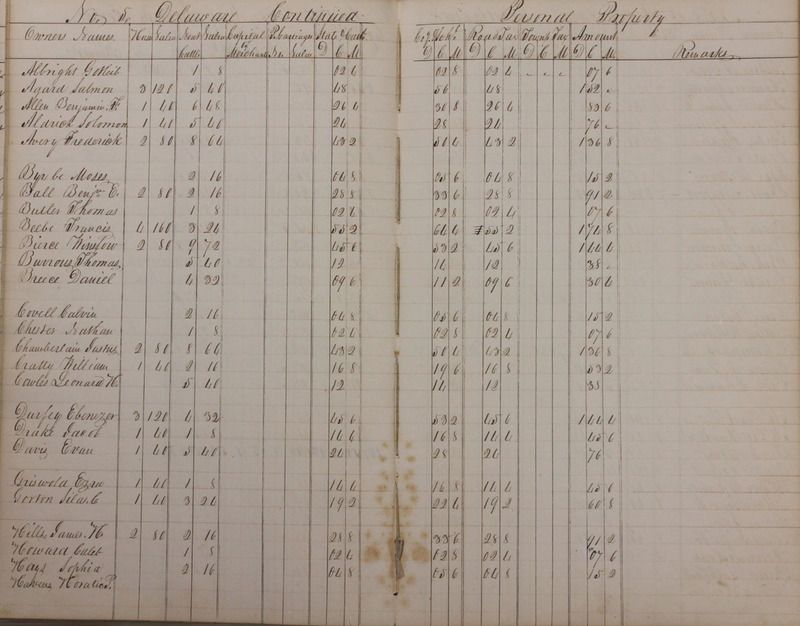 No. 5. Delaware Continued Personal Property
Owners Names Value Neat Cattle Value Capital Value State & Canal D C M Co. & School D C M Road Tax D C M Townsh Tax D C M Amount D C M Remarks
Albright Gotleib 1 8 02 4 02 8 02 4 - - - 07 6
Agard Salmon 3 120 5 40 48 56 48 152 -
Allen Benjamin 1 40 6 48 26 4 30 8 26 4 83 6
Aldrich Solomon 1 40 5 40 24 28 24 76 -
Avery Frederick 2 80 8 64 43 2 50 4 43 2 136 8
Byxbe Moses 2 16 04 8 05 6 04 8 15 2
Ball Benjn E. 2 80 2 16 28 8 33 6 28 8 91 2
Butler Thomas 1 8 02 4 02 8 02 4 07 6
Beebe Francis 4 160 3 24 55 2 64 4 55 2 174 8
Bierce Winslow 2 80 9 72 45 6 53 2 45 6 144 4
Burrous Thomas 5 40 12 14 12 38 -
Breece Daniel 4 32 09 6 11 2 09 6 30 4
Covell Calvin 2 16 04 8 05 6 04 8 15 2
Chester Nathan 1 8 02 4 02 8 02 4 07 6
Chamberlain Justus 2 80 8 64 43 2 50 4 43 2 136 8
Crassy William 1 40 2 16 16 8 19 6 16 8 53 2
Cowles Leonard H. 5 40 12 14 12 38
Durfey Ebenezer 3 120 4 32 45 6 53 2 45 6 144 4
Drake Jacob 1 40 1 8 14 4 16 8 14 4 45 6
Davis Evan 1 40 5 40 24 28 24 76
Griswold Ezra 1 40 1 8 14 4 16 8 14 4 45 6
Gorton Silas C 1 40 3 24 19 2 22 4 19 2 60 8
Hills James H 2 80 2 16 28 8 33 6 28 8 91 2
Howard Caleb 1 8 02 4 02 8 02 4 07 6
Hays Sophia 2 16 04 8 05 6 04 8 15 2
Havens Horatio P.